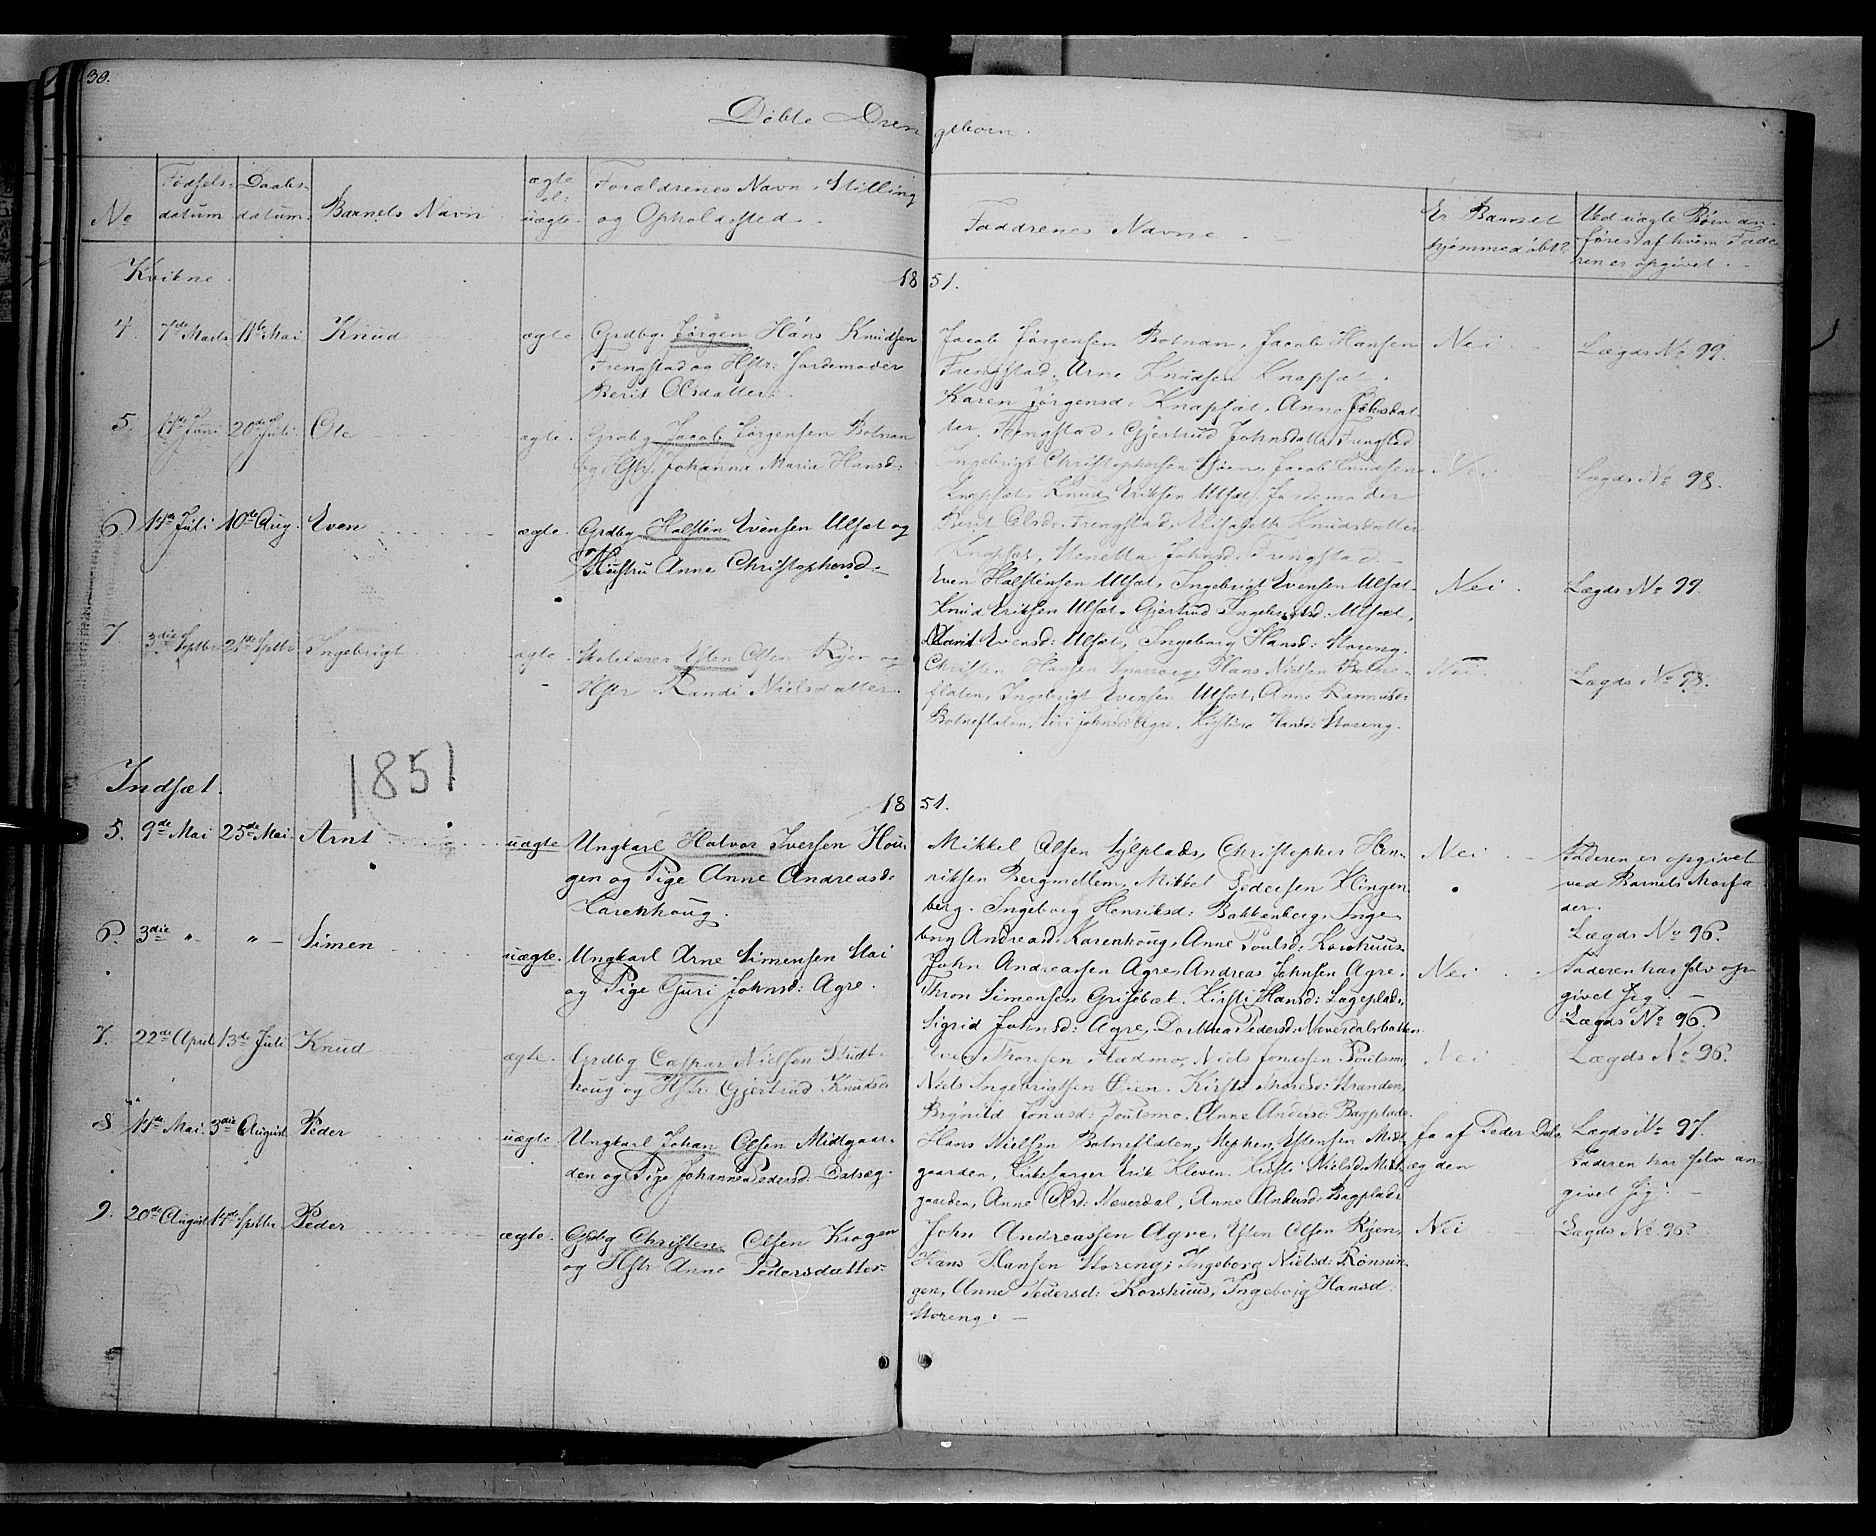 30.
Döbte Drengebörn.
No
Födsels-datum
Daabs-datum.
Barnets Navn
ægte el: uægte.
Forældrenes Navn, Stilling og Opholdssted.
Faddrenes Navne.
Er Barnet hjemmedöbt?
Ved uægte Börn anføres af hvem Faderen er opgivet.
Kvikne. 1851.
4. 7de Marts 11te Mai Knud ægte Grdbg. Jörgen Hans Knudsen
Frengstad og Hstr: Jordemoder
Berit Olsdatter.
Jacob Jörgensen Botnan, Jacob Hansen
Frengstad, Arne Knudsen Knapsæt,
Karen Jörgensd: Knapsæt, Anne Johnsdat-
ter Frengstad, Gjertrud Johnsdatter Frengstad
Nei Lægds No 99.
5. Juni 20de Juli Ole ægte. Grdbg Jacob Jörgensen Botnan
og Hstr. Johanna Maria Hansd:
Ingebrigt Christophersen Jacob Knudsen
Knapsæt, Knud Eriksen Ulsæt, Jordemoder
Berit Olsd: Frengstad, Elisabeth Knudsdatter
Knapsæt, Johnsd: Frengstad
Nei Lægds No 98.
6. 14de Juli 10de Aug. Even ægte. Grdbg Halsten Evensen Ulsæt og
Hustru Anne Christophersd.
Even Halstensen Ulsæt, Ingebrigt Evensen Ulsæt
Knud Eriksen Ulsæt, Gjertrud Ingebrigtsd: Ulsæt,
Marit Evensd: Ulsæt, Ingeborg Hansd: Storeng.
Nei Lægds No 99.
7. 3die Septbr 21de Septbr Ingebrigt ægte Skolelærer Ysten Olsen Ryen og
Hstr Randi Nielsdatter.
Christen Hansen Hans Nielsen Botne-
flaten, Ingebrigt Evensen Ulsæt, Anne Rasmusd:
Botneflaten, Siri Johnsd: Agre, Kirstine Hansd: Storeng.
Nei Lægds No 98.
Indsæt. 1851
1851.
5. 9de Mai 25de Mai Arnt uægte Ungkarl Halvor Iversen Hou-
gen og Pige Anne Andreasd:
Karenhoug.
Mikkel Olsen Sylplads, Christopher Hen-
riksen Bergmellem, Mikkel Pedersen Klingen
berg. Ingeborg Henriksd: Bakkenberg, Inge
borg Andreasd: Karenhoug, Anne Poulsd: Korshuus
Nei Faderen er opgivet
ved Barnets Morfa
der.
Lægds No 96.
6. 3die " " Simen uægte. Ungkarl Arne Simensen Stai
og Pige Guri Johnsd: Agre.
John Andreassen Agre, Andreas Johnsen Agre,
Thron Simensen Grisebæk. Kirsti Hansd: Lageplads,
Sigrid Johnsd: Agre, Dorthea Pedersd: Neverdalsbakken
Nei Faderen har selv op-
givet sig.
Lægds No 96.
7. 22de April 13de Juli Knud ægte. Grdbg Caspar Nielsen Studt-
houg og Hstr: Gjertrud Knudsd:
Iver Thoresen Aadmo, Niels Jonassen Poutsmo
Niels Ingebrigtsen Öien. Kirsti Thoresd: Stranden,
Brynild Jonasd: Poutsmo, Anne Andersd: Bagplads.
Nei Lægds No 96.
8. 14de Mai 3die August Peder uægte Ungkarl Johan Olsen Midtgaar-
den og Pige Johanne Pedersd: Dalsæg.
Hans Nielsen Botneflaten, Stephen Ystensen Midt
gaarden, Kirkesanger Erik Kleven. Kirsti Nielsd: Midt
gaarden, Anne Olsd: Neverdal, Anne Andersd: Bagplads
Ja af Peder Dals
ægden
Lægds No 97.
Faderen har selv an-
givet sig.
9. 20de August 14de Septbr Peder ægte. Grdbg Christen Olsen Krogen
og Hstr Anne Pedersdatter
John Andreassen Agre, Ysten Olsen Ryen,
Hans Hansen Storeng; Ingeborg Nielsd: Rönnin-
gen, Anne Pedersd: Korshuus, Ingeborg Hansd.
Storeng.
Nei Lægds No 96.